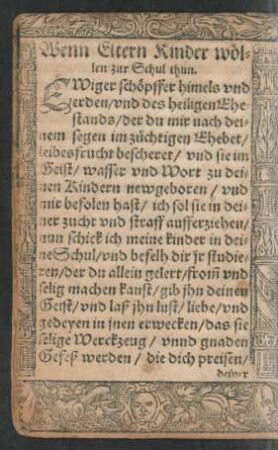 Wenn Eltern Kinder wöl-
len zur Schul thun.
EWiger schöpffer himels vnd
erden/vnd des heiligen Ehe
stands/der du mir nach dei-
nem segen im züchtigen Ehebet/
leibes frucht bescheret/ vnd sie im
Geist/ wasser vnd Wort zu dei-
nen Kindern newgeboren / vnd
mir befolen hast/ ich sol sie in dei-
ner zucht vnd straff aufferziehen/
nun schick ich meine kinder in dei-
ne Schul/vnd befelh dir jr studie-
ren/der du allein gelert/from̄ vnd
selig machen kanst/gib jhn deinen
Geist/vnd laß jhn lust/ liebe/vnd
gedeyen in jnen erwecken/das sie
selige Werckzeug / vnnd gnaden
Gefeß werden / die dich preisen/
deiner